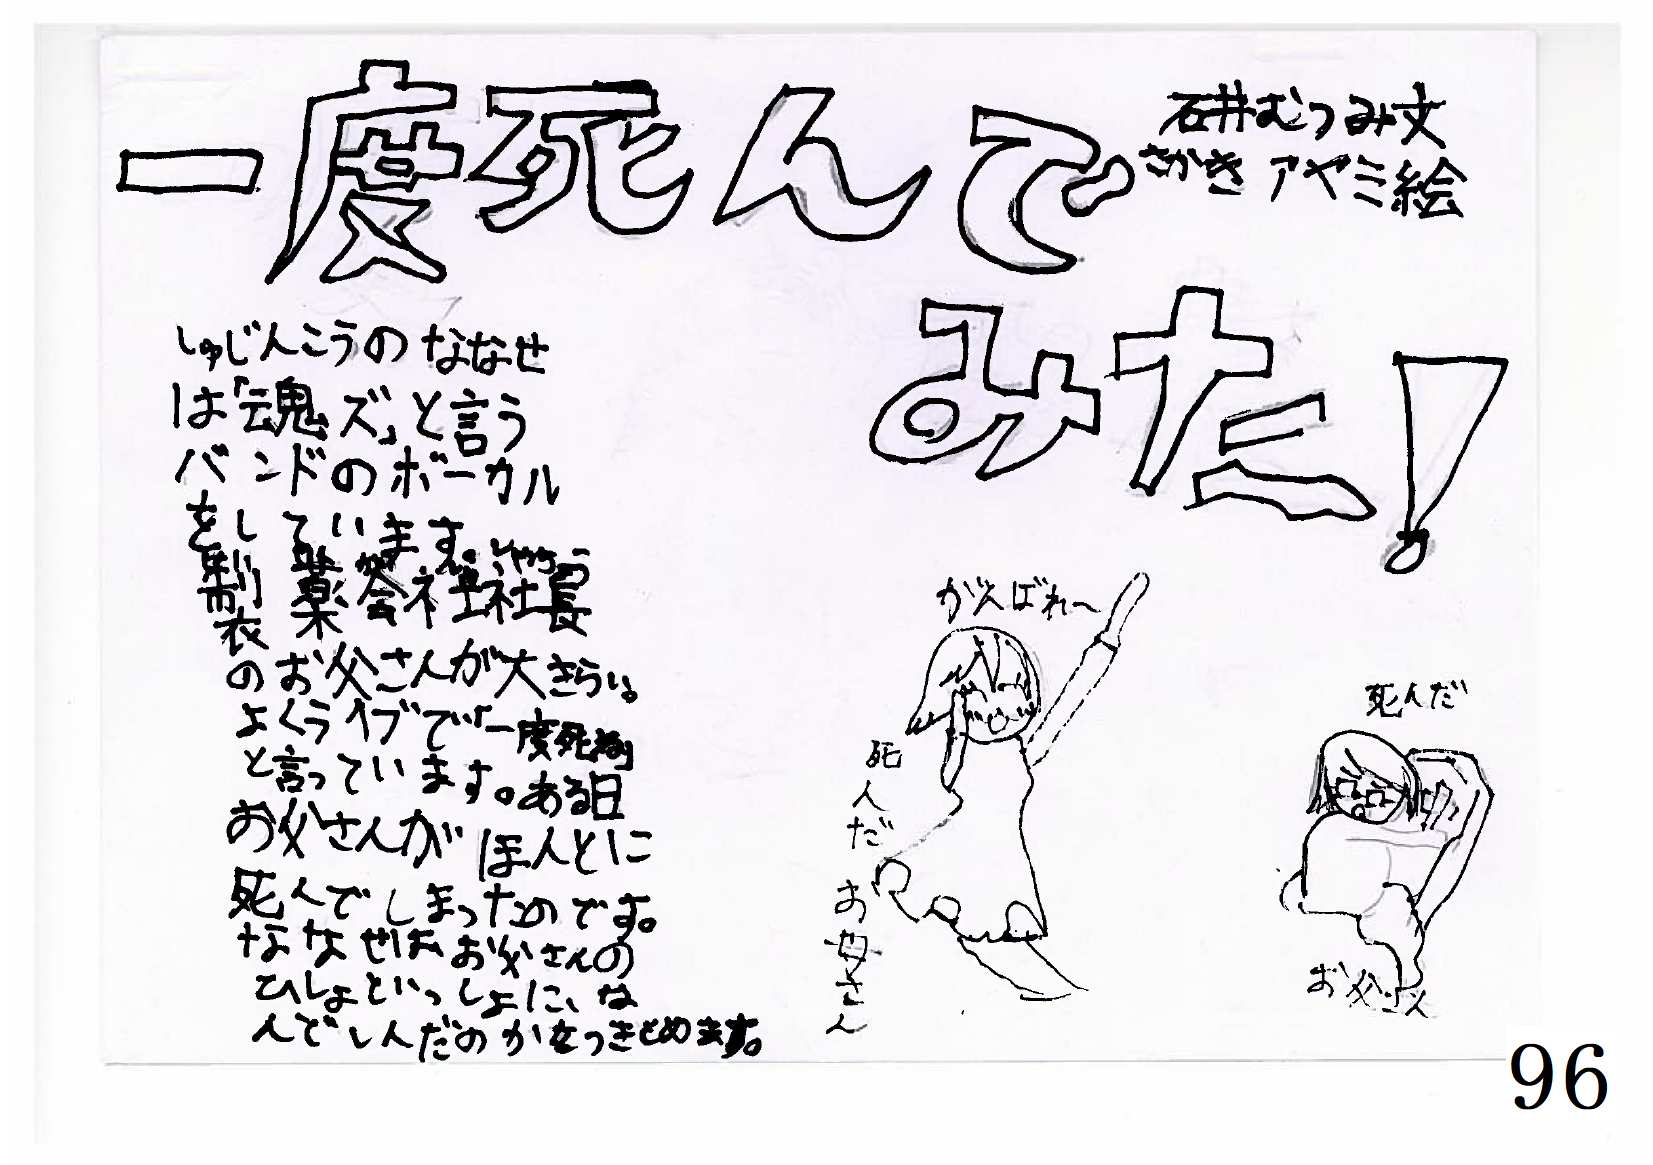 一度死んで
みた！
石井むつみ文
さかきアヤミ絵
しゅじんこうのななせ
は「魂ズ」と言う
バンドのボーカル
をしています。
製薬会社社長
がいしゃしゃちょう
のお父さんが大きらい。
よくライブで「一度死ね」
と言っています。ある日
お父さんがほんとに
死んでしまったのです。
ななせはお父さんの
ひしょといっしょに、な
んでしんだのかをつきとめます。
がんばれ〜
死んだお母さん
死んだ
お父さん
96